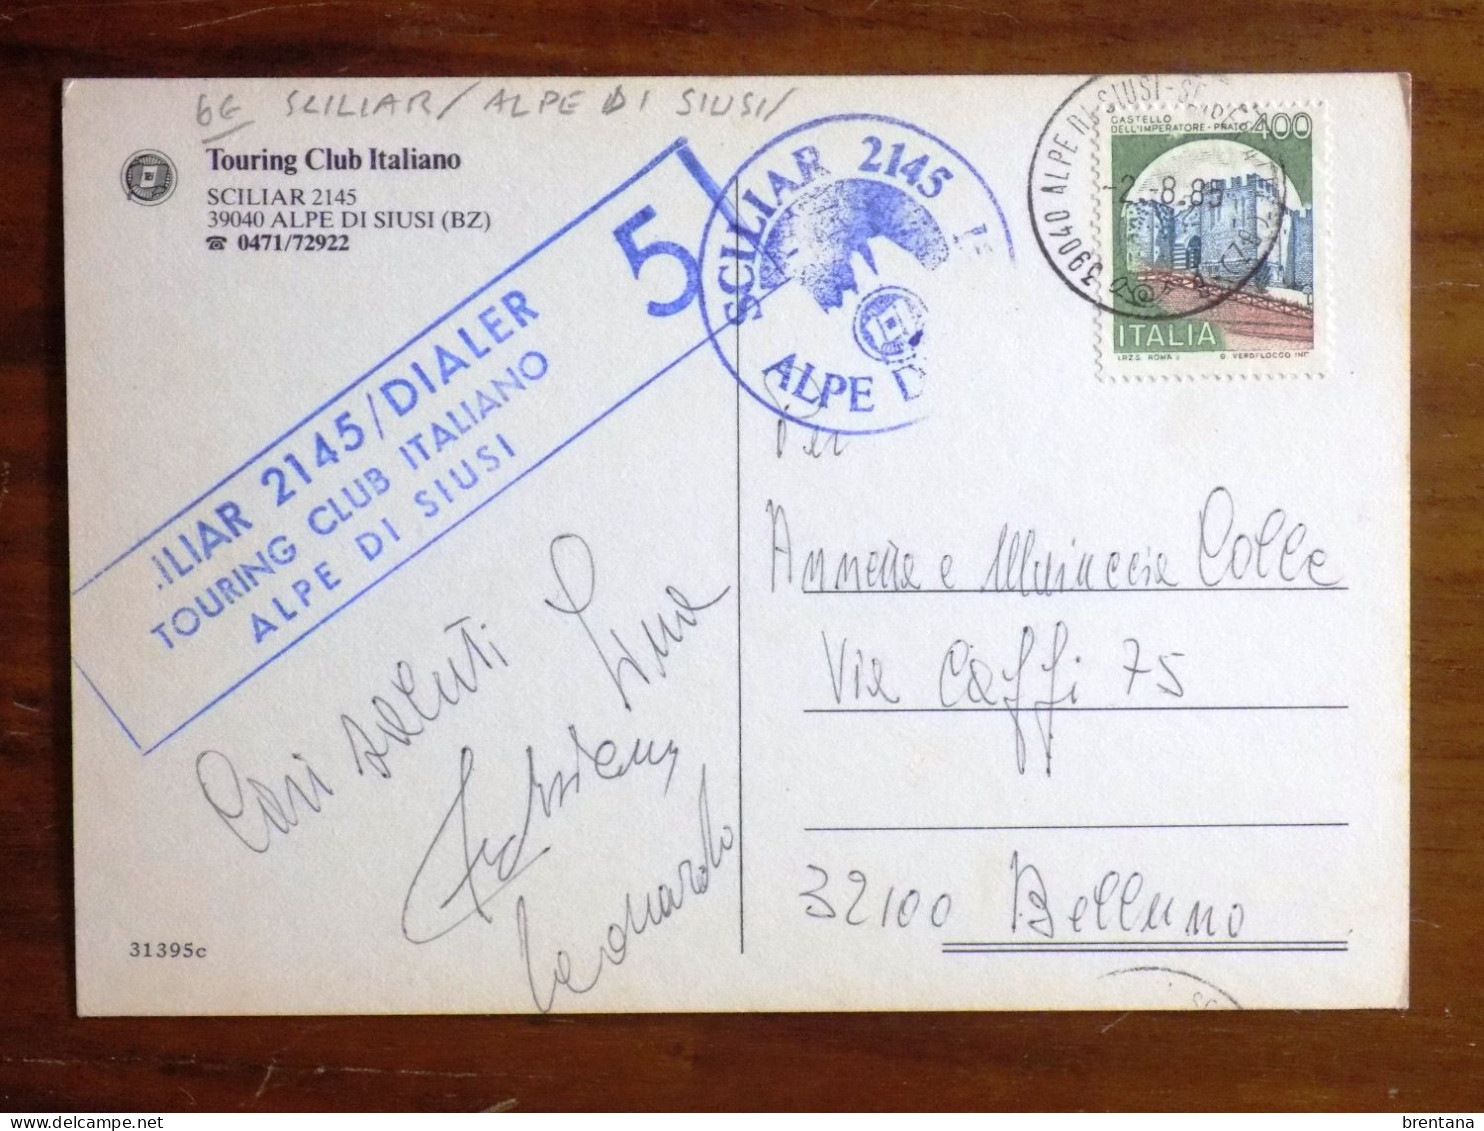 6E SCILIAR / ALPE DI SIUSI /
Touring Club Italiano
SCILIAR 2145
39040 ALPE DI SIUSI (BZ)
☎ 0471/72922
5
ILIAR 2145/DIALER
TOURING CLUB ITALIANO
ALPE DI SIUSI
SCILIAR 2145
ALPE D
39040 ALPE DI SIUSI-SE
-2.-8.89
CASTELLO
DELL'IMPERATORE - PRATO 400
ITALIA
I.P.Z.S. ROMA
G. VERDELOCCO INC
Cari saluti
Adriana
Leonardo
Per
Annetta e Mariuccia Colle
Via Caffi 75
32100 Belluno
31395c
brentana